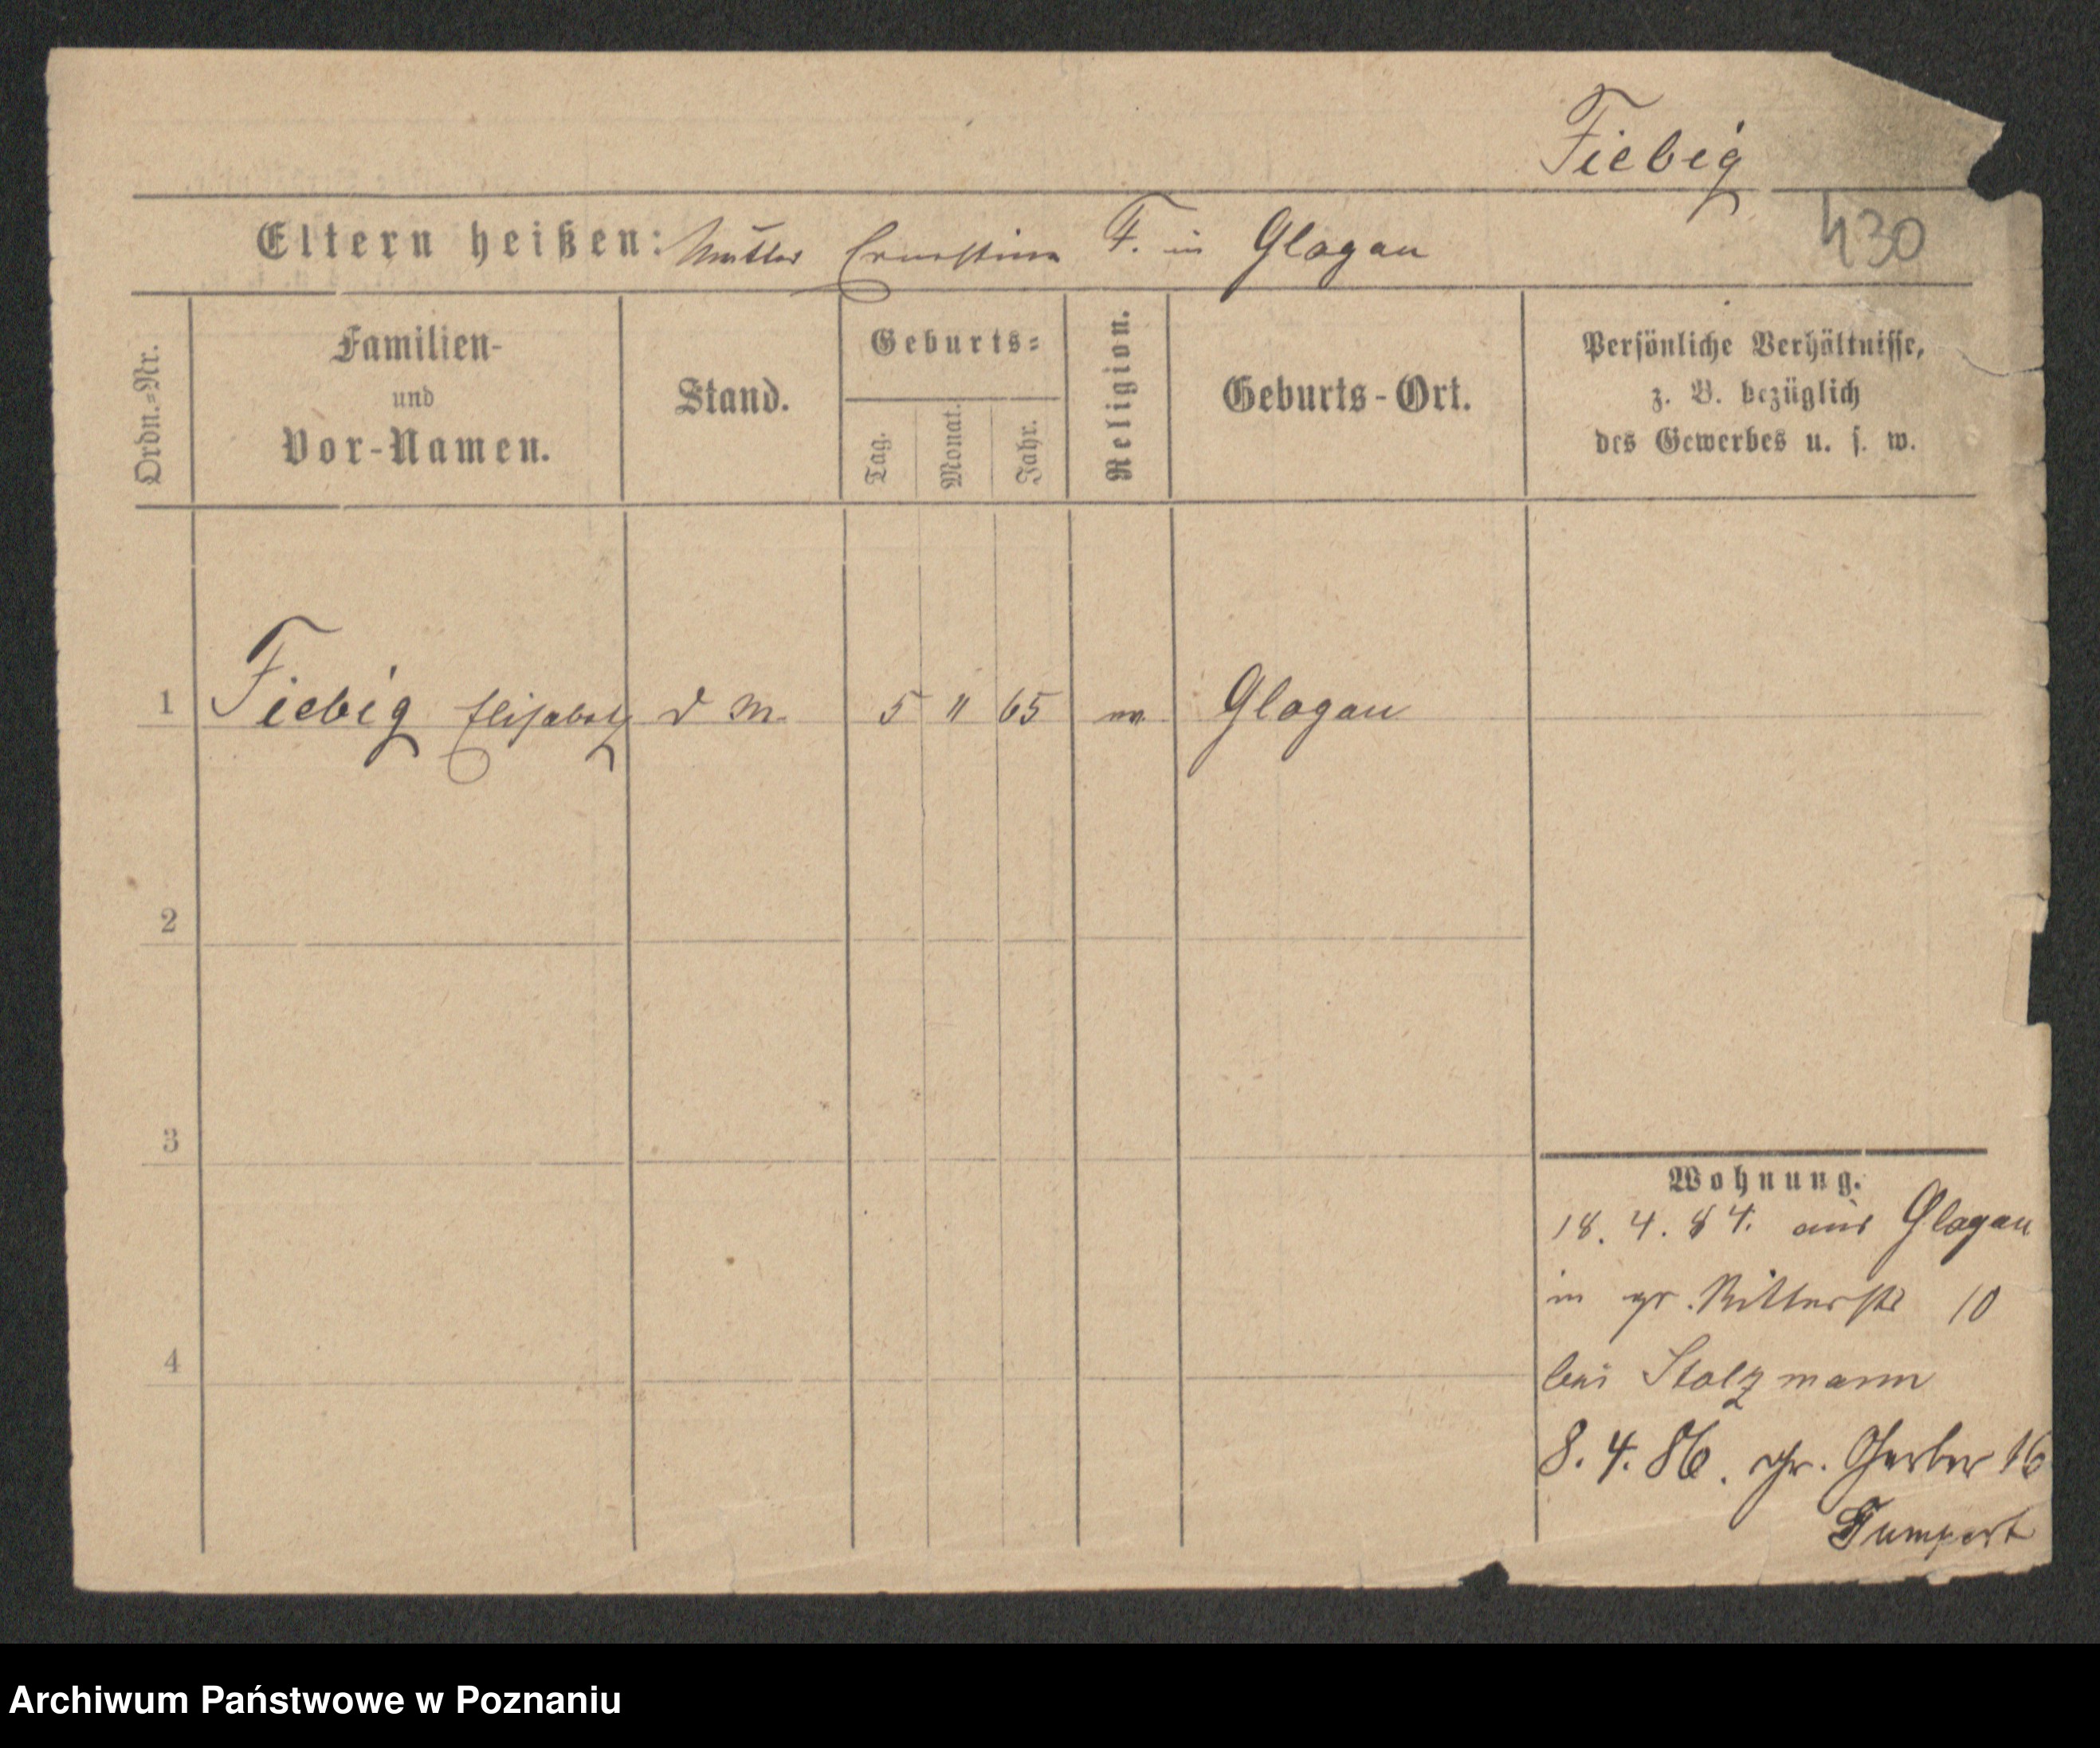 Fiebig
Eltern heißen: Mutter Ernestine F. in Glogau
430
Ordn.-Nr.
Familien-
und
Vor-Namen.
Stand.
Geburts-
Tag.
Monat.
Jahr.
Religion.
Geburts-Ort.
Persönliche Verhältnisse,
z. B. bezüglich
des Gewerbes u. s. w.
1 Fiebig Elisabeth d M. 5 11 65 Glogau
2
3
4
Wohnung.
18. 4. 84. aus Glogau
in gr. Ritterstr 10
bei Stolzmann
8. 4. 86. gr. Gerber 16
Gumpert
Archiwum Państwowe w Poznaniu